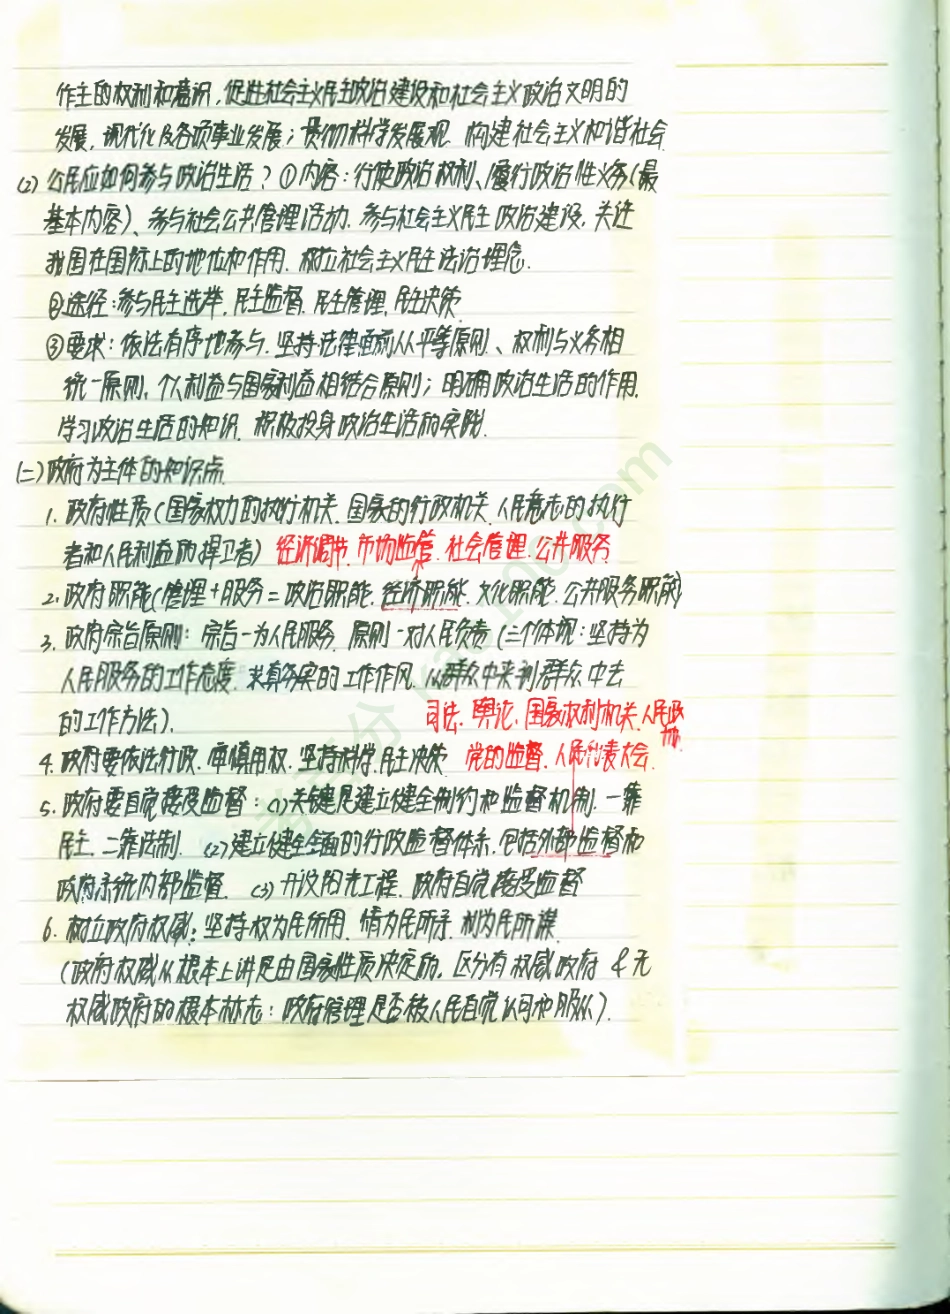 作主的权利和意识,促进社会主义民主政治建设和社会主义政治文明的
发展,现代化及各项事业发展;贯彻科学发展观、构建社会主义和谐社会.
(2)公民应如何参与政治生活?①内容:行使政治权利、履行政治性义务(最
基本内容)、参与社会公共管理活动、参与社会主义民主政治建设、关注
我国在国际上的地位和作用、树立社会主义民主法治理念.
②途径:参与民主选举、民主监督、民主管理、民主决策
③要求:依法有序地参与、坚持法律面前人人平等原则、权利与义务相
统一原则、个人利益与国家利益相结合原则;明确政治生活的作用、
学习政治生活的知识、积极投身政治生活的实践.
(二)政府为主体的知识点
1.政府性质(国家权力的执行机关、国家的行政机关、人民意志的执行
者和人民利益的捍卫者) 经济调节、市场监管、社会管理、公共服务
2.政府职能(管理+服务=政治职能、经济职能、文化职能、公共服务职能)
3.政府宗旨原则:宗旨—为人民服务、原则—对人民负责(三个体现:坚持为
人民服务的工作态度、求真务实的工作作风、从群众中来到群众中去
的工作方法). 司法、舆论、国家权利机关、人民政协、
4.政府要依法行政、审慎用权、坚持科学、民主决策 党的监督、人民代表大会
5.政府要自觉接受监督:(1)关键是建立健全制约和监督机制、一靠
民主、二靠法制. (2)建立健全全面的行政监督体系,包括外部监督和
政府系统内部监督. (3)开设阳光工程、政府自觉接受监督
6.树立政府权威:坚持权为民所用、情为民所系、利为民所谋
(政府权威从根本上讲是由国家性质决定的,区分有权威政府&无
权威政府的根本标志:政府管理是否被人民自觉认可和服从).